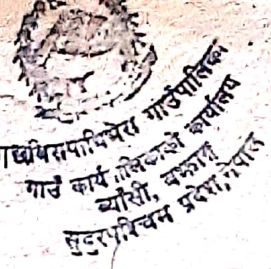 गाउँपालिका
गाउँ कार्यपालिकाको कार्यालय
ब्याँसी, बझाङ्ग
सुदुरपश्चिम प्रदेश, नेपाल